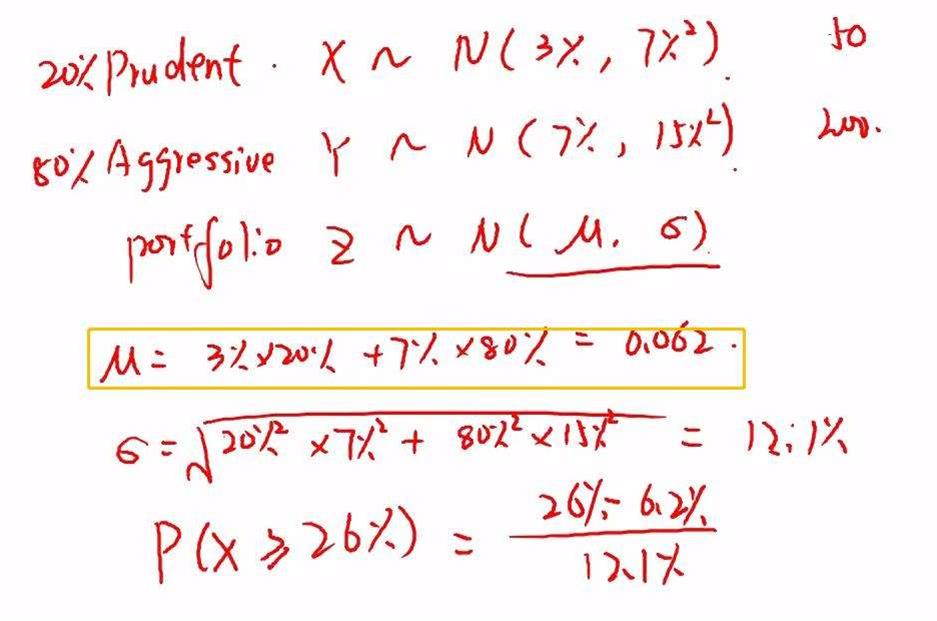 20% Prudent · X ~ N(3%, 7%²) 50
80% Aggressive Y ~ N(7%, 15%²) 200.
portfolio Z ~ N(μ, σ)
μ = 3% × 20% + 7% × 80% = 0.062.
σ = √(20%² × 7%² + 80%² × 15%²) = 12.1%
P(X ≥ 26%) = (26% - 6.2%) / 12.1%